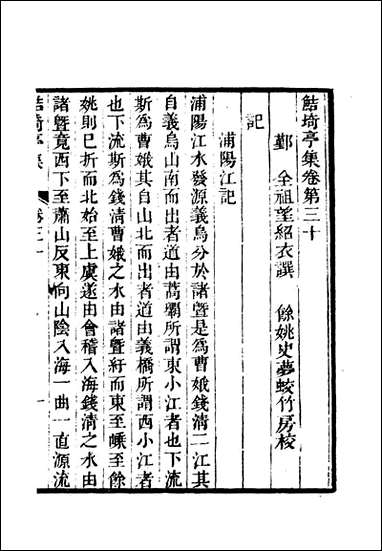 鮚埼亭集卷第三十
鄞 全祖望紹衣譔 餘姚史夢蛟竹房校
記
浦陽江記
浦陽江水發源義烏分於諸曁是為曹娥錢清二江其
自義烏山南而出者道由蒿壩所謂東小江者也下流
斯為曹娥其自山北而出者道由義橋所謂西小江者
也下流斯為錢清曹娥之水由諸曁紆而東至嵊至餘
姚則已折而北始至上虞遂由會稽入海錢清之水由
諸曁竟西下至蕭山反東向山陰入海一曲一直源流
鮚埼亭集 卷三十 一